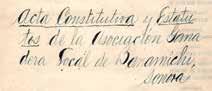 Acta Constitutiva y Estatu-
tos de la Asociación Gana
dera Local de Banamichi,
Sonora